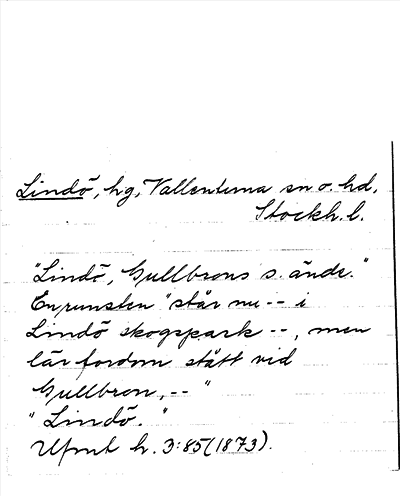 Lindö, hg, Vallentuna sn o. hd,
Stockh. l.
"Lindö, Gullbrons s. ände."
En runsten "står nu -- i
Lindö skogspark --, men
lär fordom stått vid
Gullbron, -- "
"Lindö."
Ufmt h. 3:85 (1873).